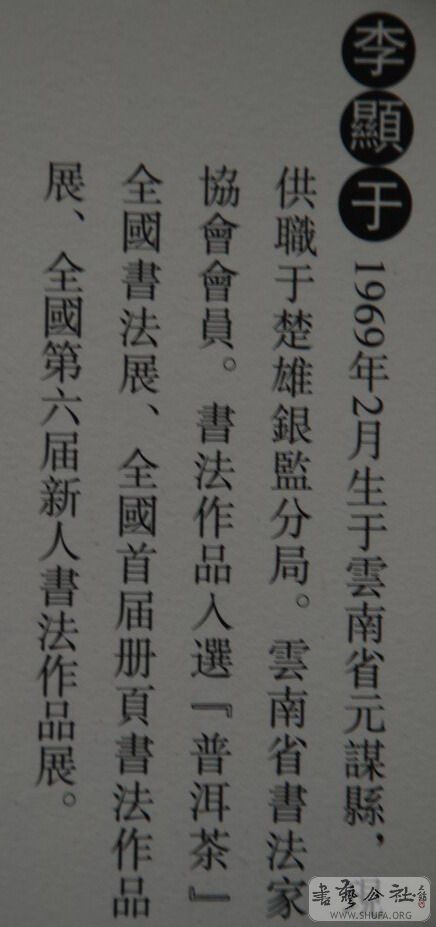 李顯于 1969年2月生于雲南省元謀縣，現
供職于楚雄銀監分局。雲南省書法家
協會會員。書法作品入選『普洱茶』
全國書法展、全國首届册頁書法作品
展、全國第六届新人書法作品展。
書藝公社
WWW.SHUFA.ORG